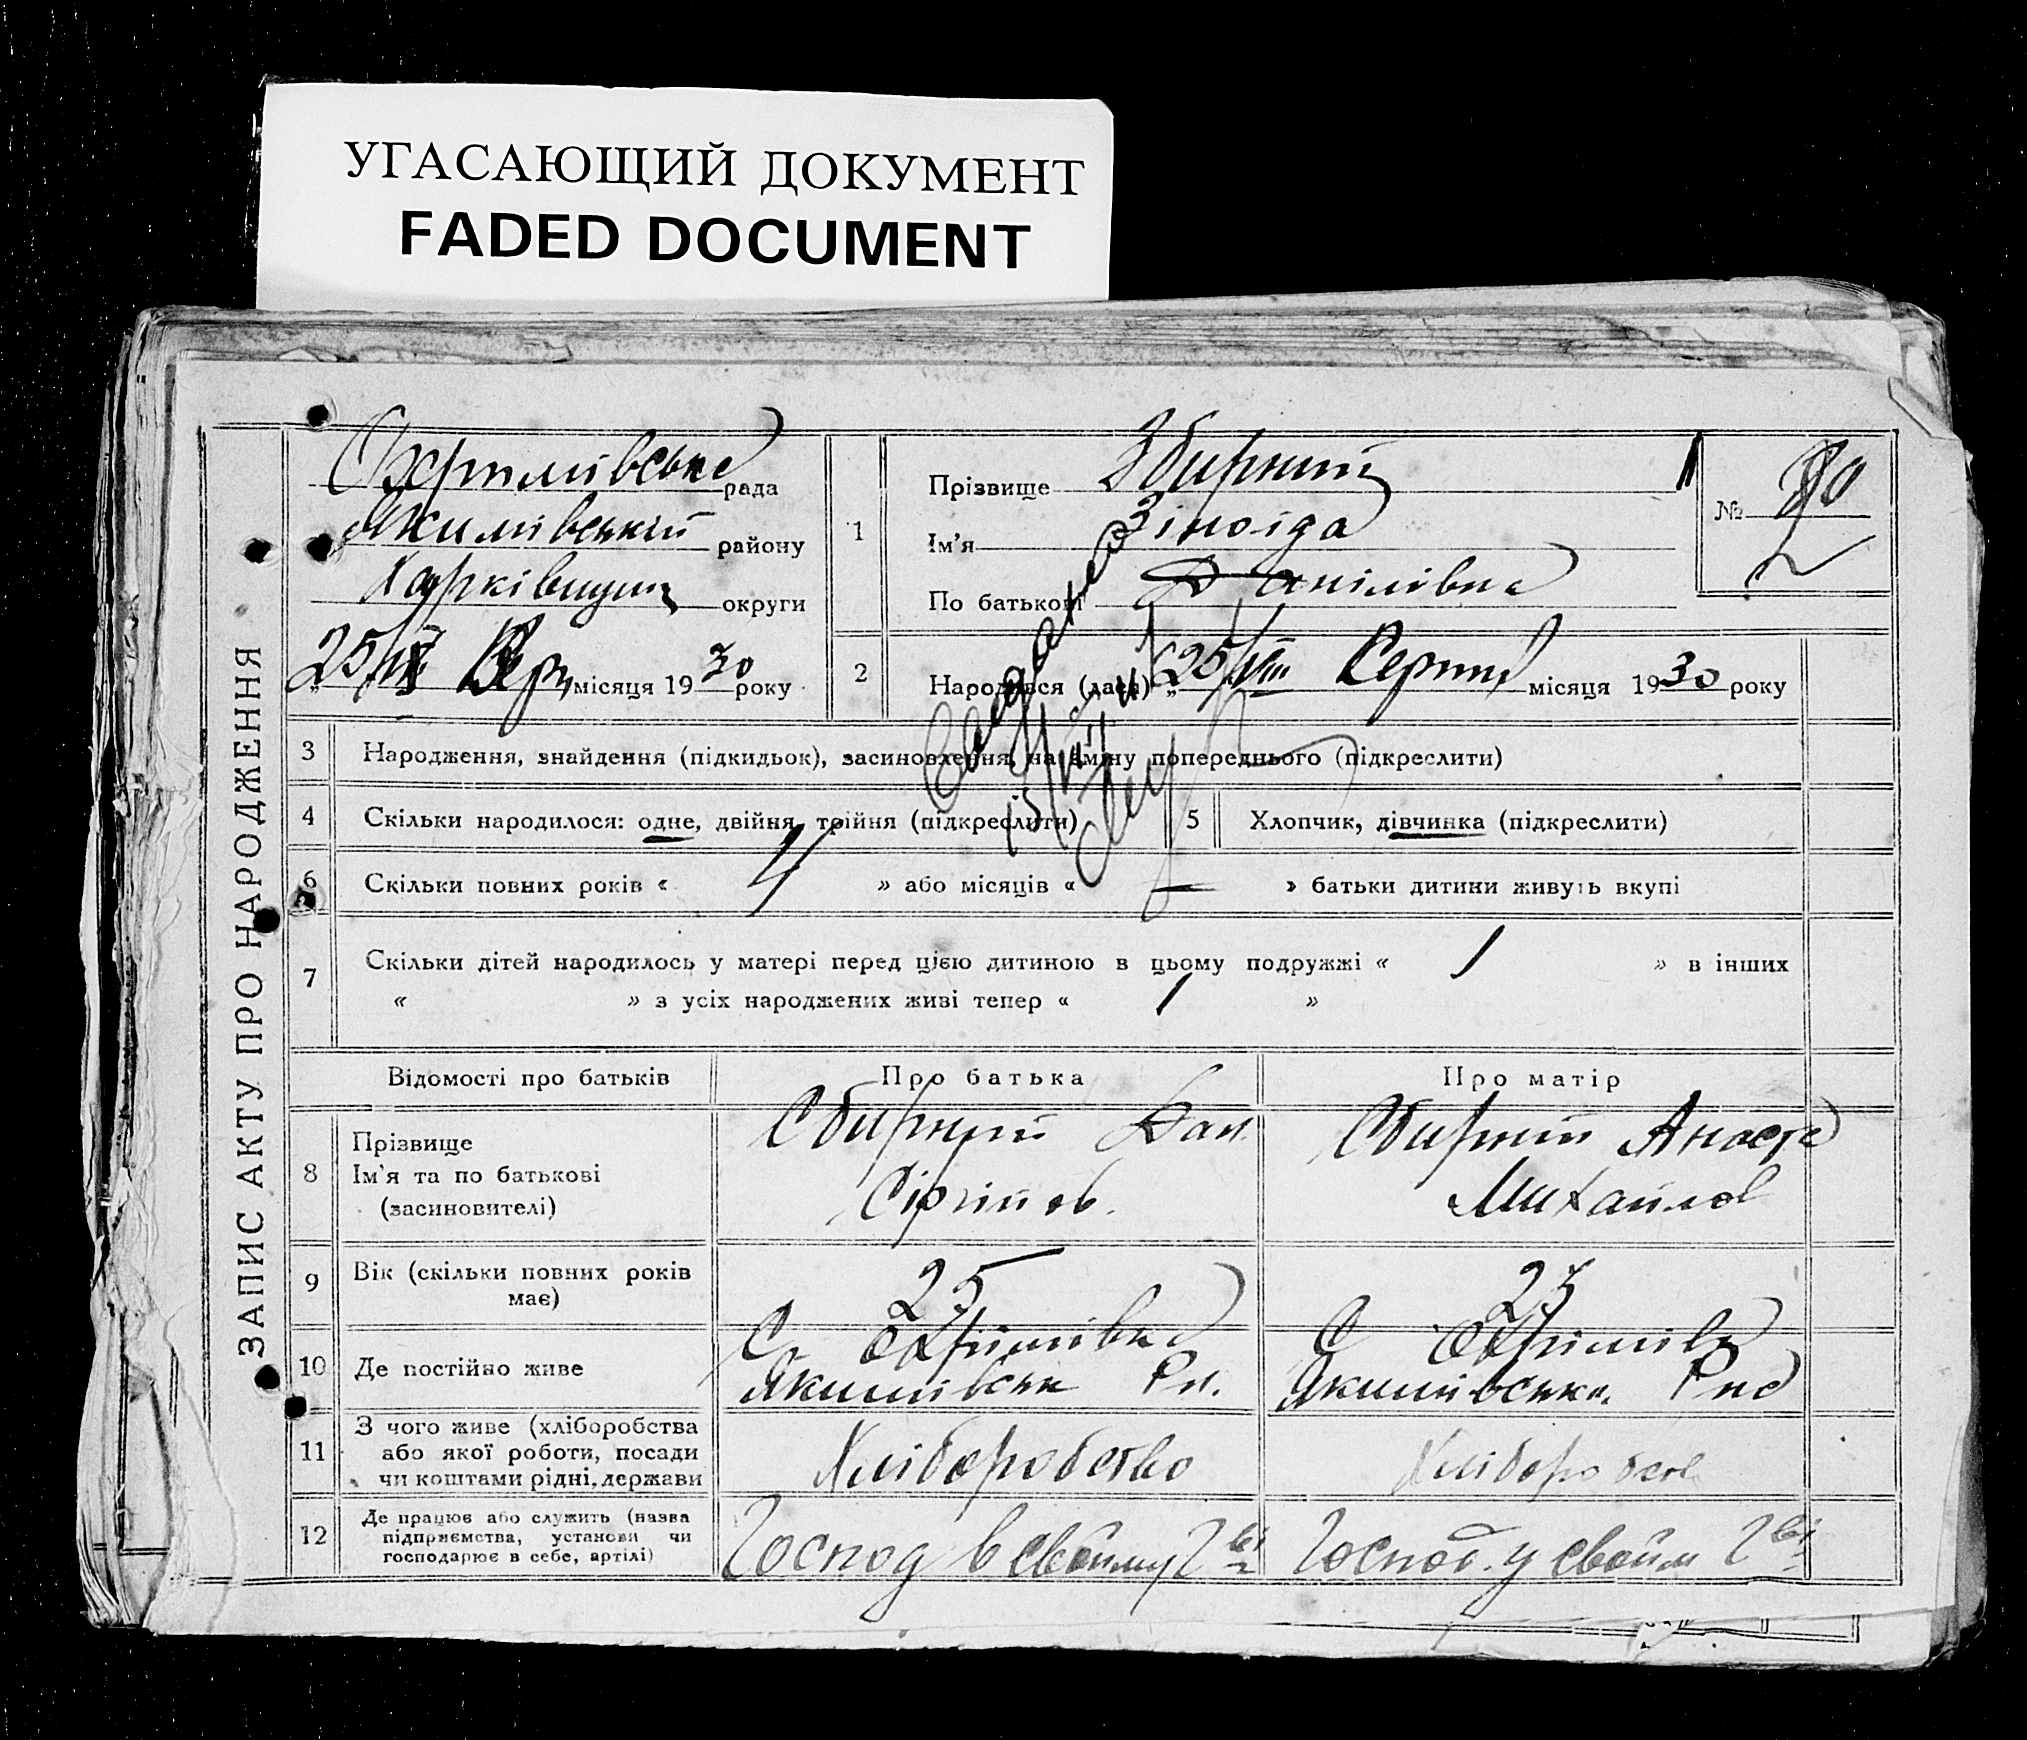 УГАСАЮЩИЙ ДОКУМЕНТ
FADED DOCUMENT
ЗАПИС АКТУ ПРО НАРОДЖЕННЯ
Охримівська рада
Якимівський району
округи
25/IX Вер. місяця 1930 року
1
Прізвище Збирний
Ім'я Зіноїда
По батькові Данілівна
№ 80
2
Народився (дата) „25/VIII Серпня місяця 1930 року
3 Народження, знайдення (підкидьок), засиновлення, на зміну попереднього (підкреслити)
4 Скільки народилося: одне, двійня, трійня (підкреслити)
5 Хлопчик, дівчинка (підкреслити)
6 Скільки повних років « 4 » або місяців « — » батьки дитини живуть вкупі
7 Скільки дітей народилось у матері перед цією дитиною в цьому подружжі « 1 » в інших
« » з усіх народжених живі тепер « 1 »
Відомості про батьків Про батька Про матір
8
Прізвище
Ім'я та по батькові
(засиновителі)
Сбирний Дан
Сіргійов.
Сбирний Анаст
Михайлов
9 Вік (скільки повних років
має)
25
25
10 Де постійно живе
С. Охрімівка
Якимівськ Рн.
С Охрімівк
Якимівська.
11
З чого живе (хліборобства
або якої роботи, посади
чи коштами рідні, держави
Хліборобство
Хліборобств
12
Де працює або служить (назва
підприємства, установи чи
господарює в себе, артілі)
Господ в свойму Г-ві
Господ. у свойм Г-ві